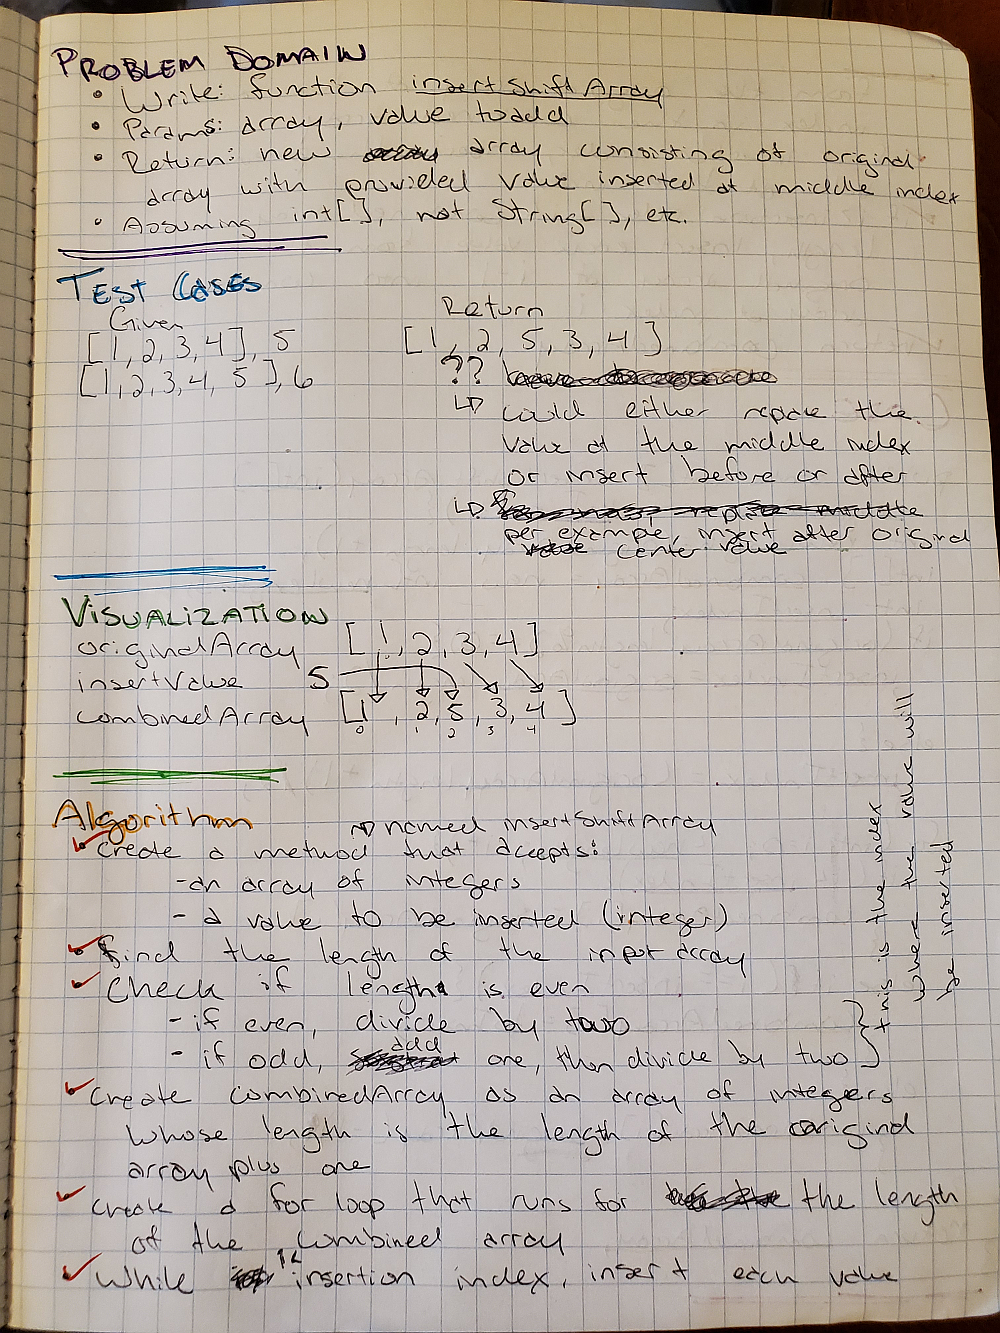 PROBLEM DOMAIN
• Write: function insertShiftArray
• Params: array, value to add
• Return: new array consisting of original
array with provided value inserted at middle index
• Assuming int[], not String[], etc.
TEST CASES
Given Return
[1,2,3,4], 5 [1, 2, 5, 3, 4]
[1,2,3,4,5], 6 ??
↳ could either replace the
value at the middle index
or insert before or after
↳ per example, insert after original
center value
VISUALIZATION
originalArray [1, 2, 3, 4]
insertValue 5
combinedArray [1, 2, 5, 3, 4]
0 1 2 3 4
Algorithm
→ named insertShiftArray
• create a method that accepts:
- an array of integers
- a value to be inserted (integer)
• find the length of the input array
• Check if length is even
- if even, divide by two
- if odd, add one, then divide by two
this is the index
where the value will
be inserted
• create combinedArray as an array of integers
whose length is the length of the original
array plus one
• create a for loop that runs for the length
of the combined array
• while i< insertion index, insert each value